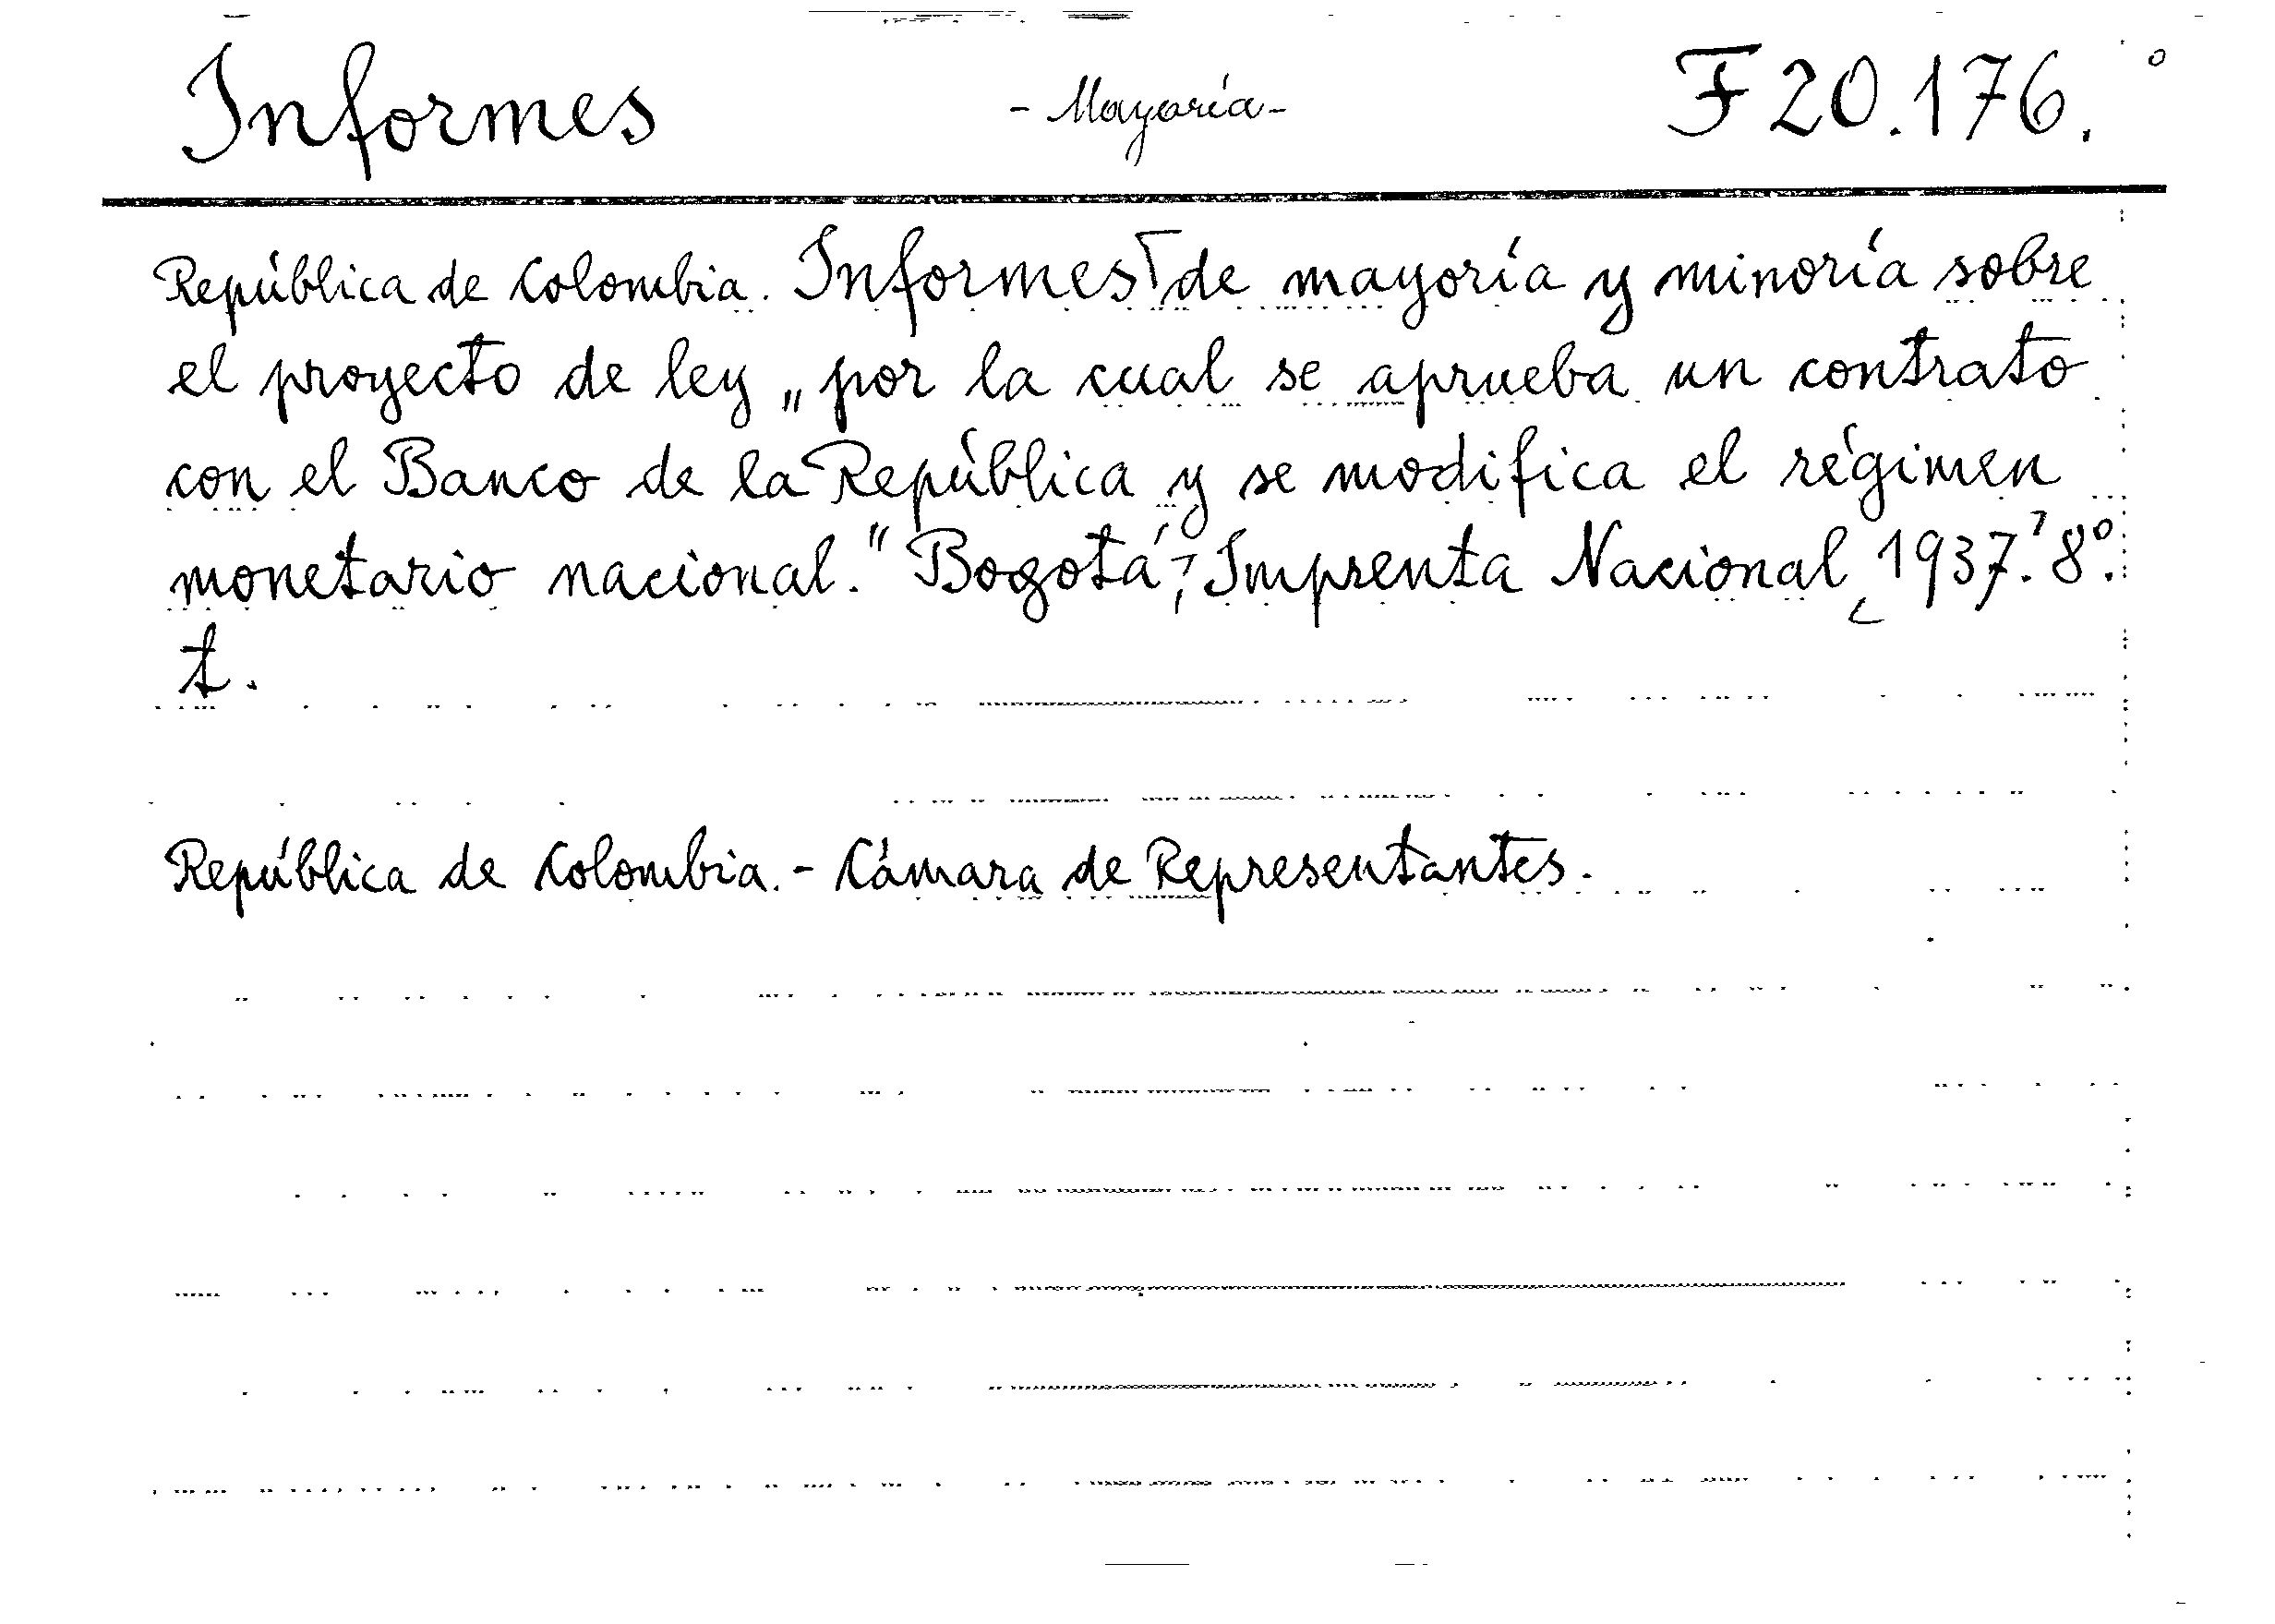 Informes - Mayoría - F 20.176.
República de Colombia. Informes de mayoría y minoría sobre
el proyecto de ley „por la cual se aprueba un contrato
con el Banco de la República y se modifica el régimen
monetario nacional." Bogotá, Imprenta Nacional, 1937. 8º.
t.
República de Colombia. - Cámara de Representantes.